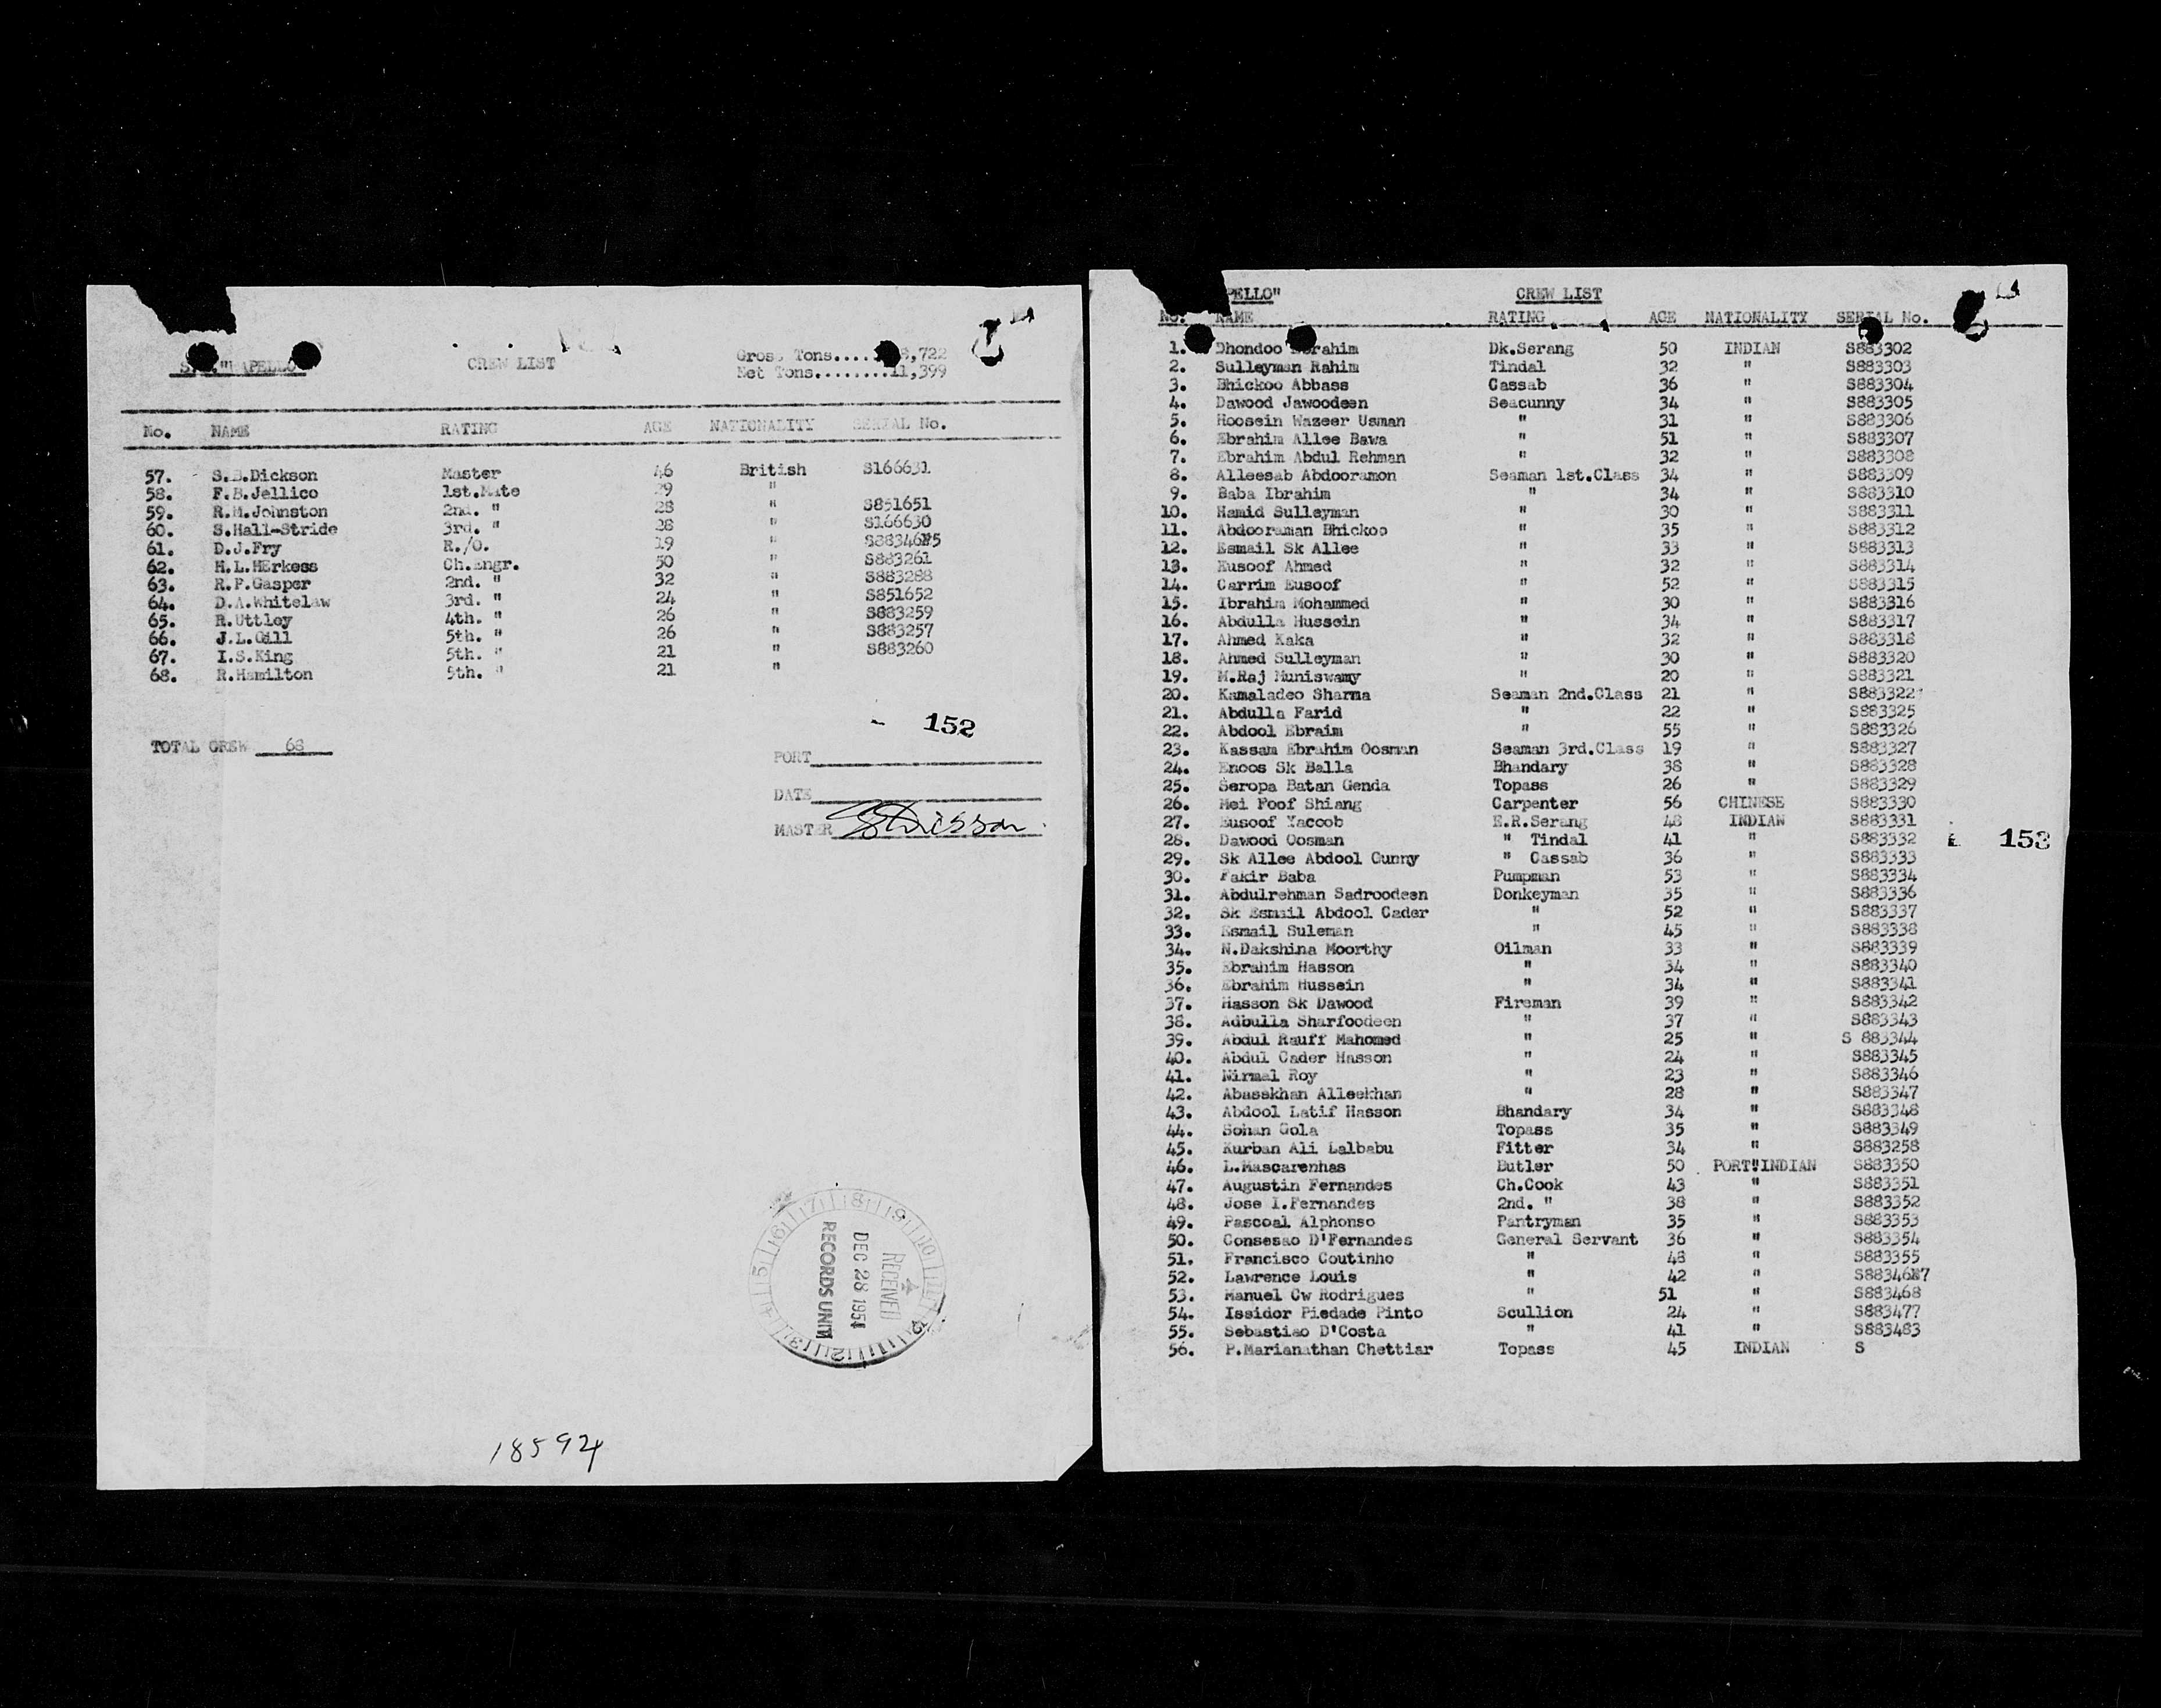 CREW LIST
Gross Tons
Net Tons........11,399
No. NAME RATING AGE NATIONALITY SERIAL No.
57. S.B.Dickson Master 46 British S166631
58. F.B.Jellico 1st.Mate 29 "
59. R.M.Johnston 2nd. " 28 " S851651
60. S.Hall-Stride 3rd. " 28 " S166630
61. D.J.Fry R./O. 19 "
62. H.L.HErkess Ch.Engr. 50 " S883261
63. R.F.Gasper 2nd. " 32 " S883288
64. D.A.Whitelaw 3rd. " 24 " S851652
65. R.Uttley 4th. " 26 " S883259
66. J.L.Gill 5th. " 26 " S883257
67. I.S.King 5th. " 21 " S883260
68. R.Hamilton 5th. " 21 "
- 152
TOTAL CREW 68
PORT
DATE
MASTER
RECEIVED
DEC 28 1954
RECORDS UNIT
18594
PELLO" CREW LIST
No. NAME RATING AGE NATIONALITY SERIAL No.
1. Dhondoo Dk.Serang 50 INDIAN S883302
2. Sulleyman Rahim Tindal 32 " S883303
3. Bhickoo Abbass Cassab 36 " S883304
4. Dawood Jawoodeen Seacunny 34 " S883305
5. Hoosein Wazeer Usman " 31 " S883306
6. Ebrahim Allee Bawa " 51 " S883307
7. Ebrahim Abdul Rehman " 32 " S883308
8. Alleesab Abdooramon Seaman 1st.Class 34 " S883309
9. Baba Ibrahim " 34 " S883310
10. Hamid Sulleyman " 30 " S883311
11. Abdooraman Bhickoo " 35 " S883312
12. Esmail Sk Allee " 33 " S883313
13. Eusoof Ahmed " 32 " S883314
14. Carrim Eusoof " 52 " S883315
15. Ibrahim Mohammed " 30 " S883316
16. Abdulla Hussein " 34 " S883317
17. Ahmed Kaka " 32 " S883318
18. Ahmed Sulleyman " 30 " S883320
19. M.Raj Muniswamy " 20 " S883321
20. Kamaladeo Sharma Seaman 2nd.Class 21 " S883322
21. Abdulla Farid " 22 " S883325
22. Abdool Ebraim " 55 " S883326
23. Kassam Ebrahim Oosman Seaman 3rd.Class 19 " S883327
24. Enoos Sk Balla Bhandary 38 " S883328
25. Seropa Batan Genda Topass 26 " S883329
26. Mei Foof Shiang Carpenter 56 CHINESE S883330
27. Eusoof Yacoob E.R.Serang 48 INDIAN S883331
28. Dawood Oosman " Tindal 41 " S883332
153
29. Sk Allee Abdool Gunny " Cassab 36 " S883333
30. Fakir Baba Pumpman 53 " S883334
31. Abdulrehman Sadroodeen Donkeyman 35 " S883336
32. Sk Esmail Abdool Cader " 52 " S883337
33. Esmail Suleman " 45 " S883338
34. N.Dakshina Moorthy Oilman 33 " S883339
35. Ebrahim Hasson " 34 " S883340
36. Ebrahim Hussein " 34 " S883341
37. Hasson Sk Dawood Fireman 39 " S883342
38. Adbulla Sharfoodeen " 37 " S883343
39. Abdul Rauff Mahomed " 25 " S 883344
40. Abdul Cader Hasson " 24 " S883345
41. Nirmal Roy " 23 " S883346
42. Abasskhan Alleekhan " 28 " S883347
43. Abdool Latif Hasson Bhandary 34 " S883348
44. Sohan Gola Topass 35 " S883349
45. Kurban Ali Lalbabu Fitter 34 " S883258
46. L.Mascarenhas Butler 50 PORT"INDIAN S883350
47. Augustin Fernandes Ch.Cook 43 " S883351
48. Jose I.Fernandes 2nd. " 38 " S883352
49. Pascoal Alphonso Pantryman 35 " S883353
50. Consesao D'Fernandes General Servant 36 " S883354
51. Francisco Coutinho " 48 " S883355
52. Lawrence Louis " 42 "
53. Manuel Cw Rodrigues " 51 " S883468
54. Issidor Piedade Pinto Scullion 24 " S883477
55. Sebastiao D'Costa " 41 " S883483
56. P.Marianathan Chettiar Topass 45 INDIAN S